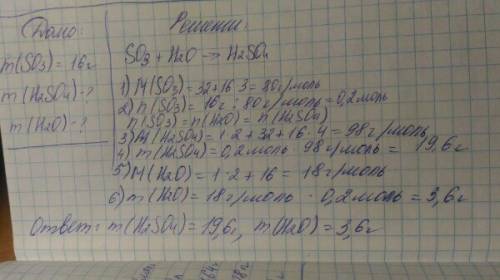 Дано:
m(SO3) = 16г
m(H2SO4)-?
m(H2O)-?
Решение:
SO3 + H2O → H2SO4
1) M(SO3) = 32+16·3 = 80г/моль
2) n(SO3) = 16г : 80г/моль = 0,2моль
n(SO3) = n(H2O) = n(H2SO4)
3) M(H2SO4) = 1·2 + 32 + 16·4 = 98г/моль
4) m(H2SO4) = 0,2моль · 98г/моль = 19,6г
5) M(H2O) = 1·2 + 16 = 18г/моль
6) m(H2O) = 18г/моль · 0,2моль = 3,6г
Ответ: m(H2SO4) = 19,6г, m(H2O) = 3,6г